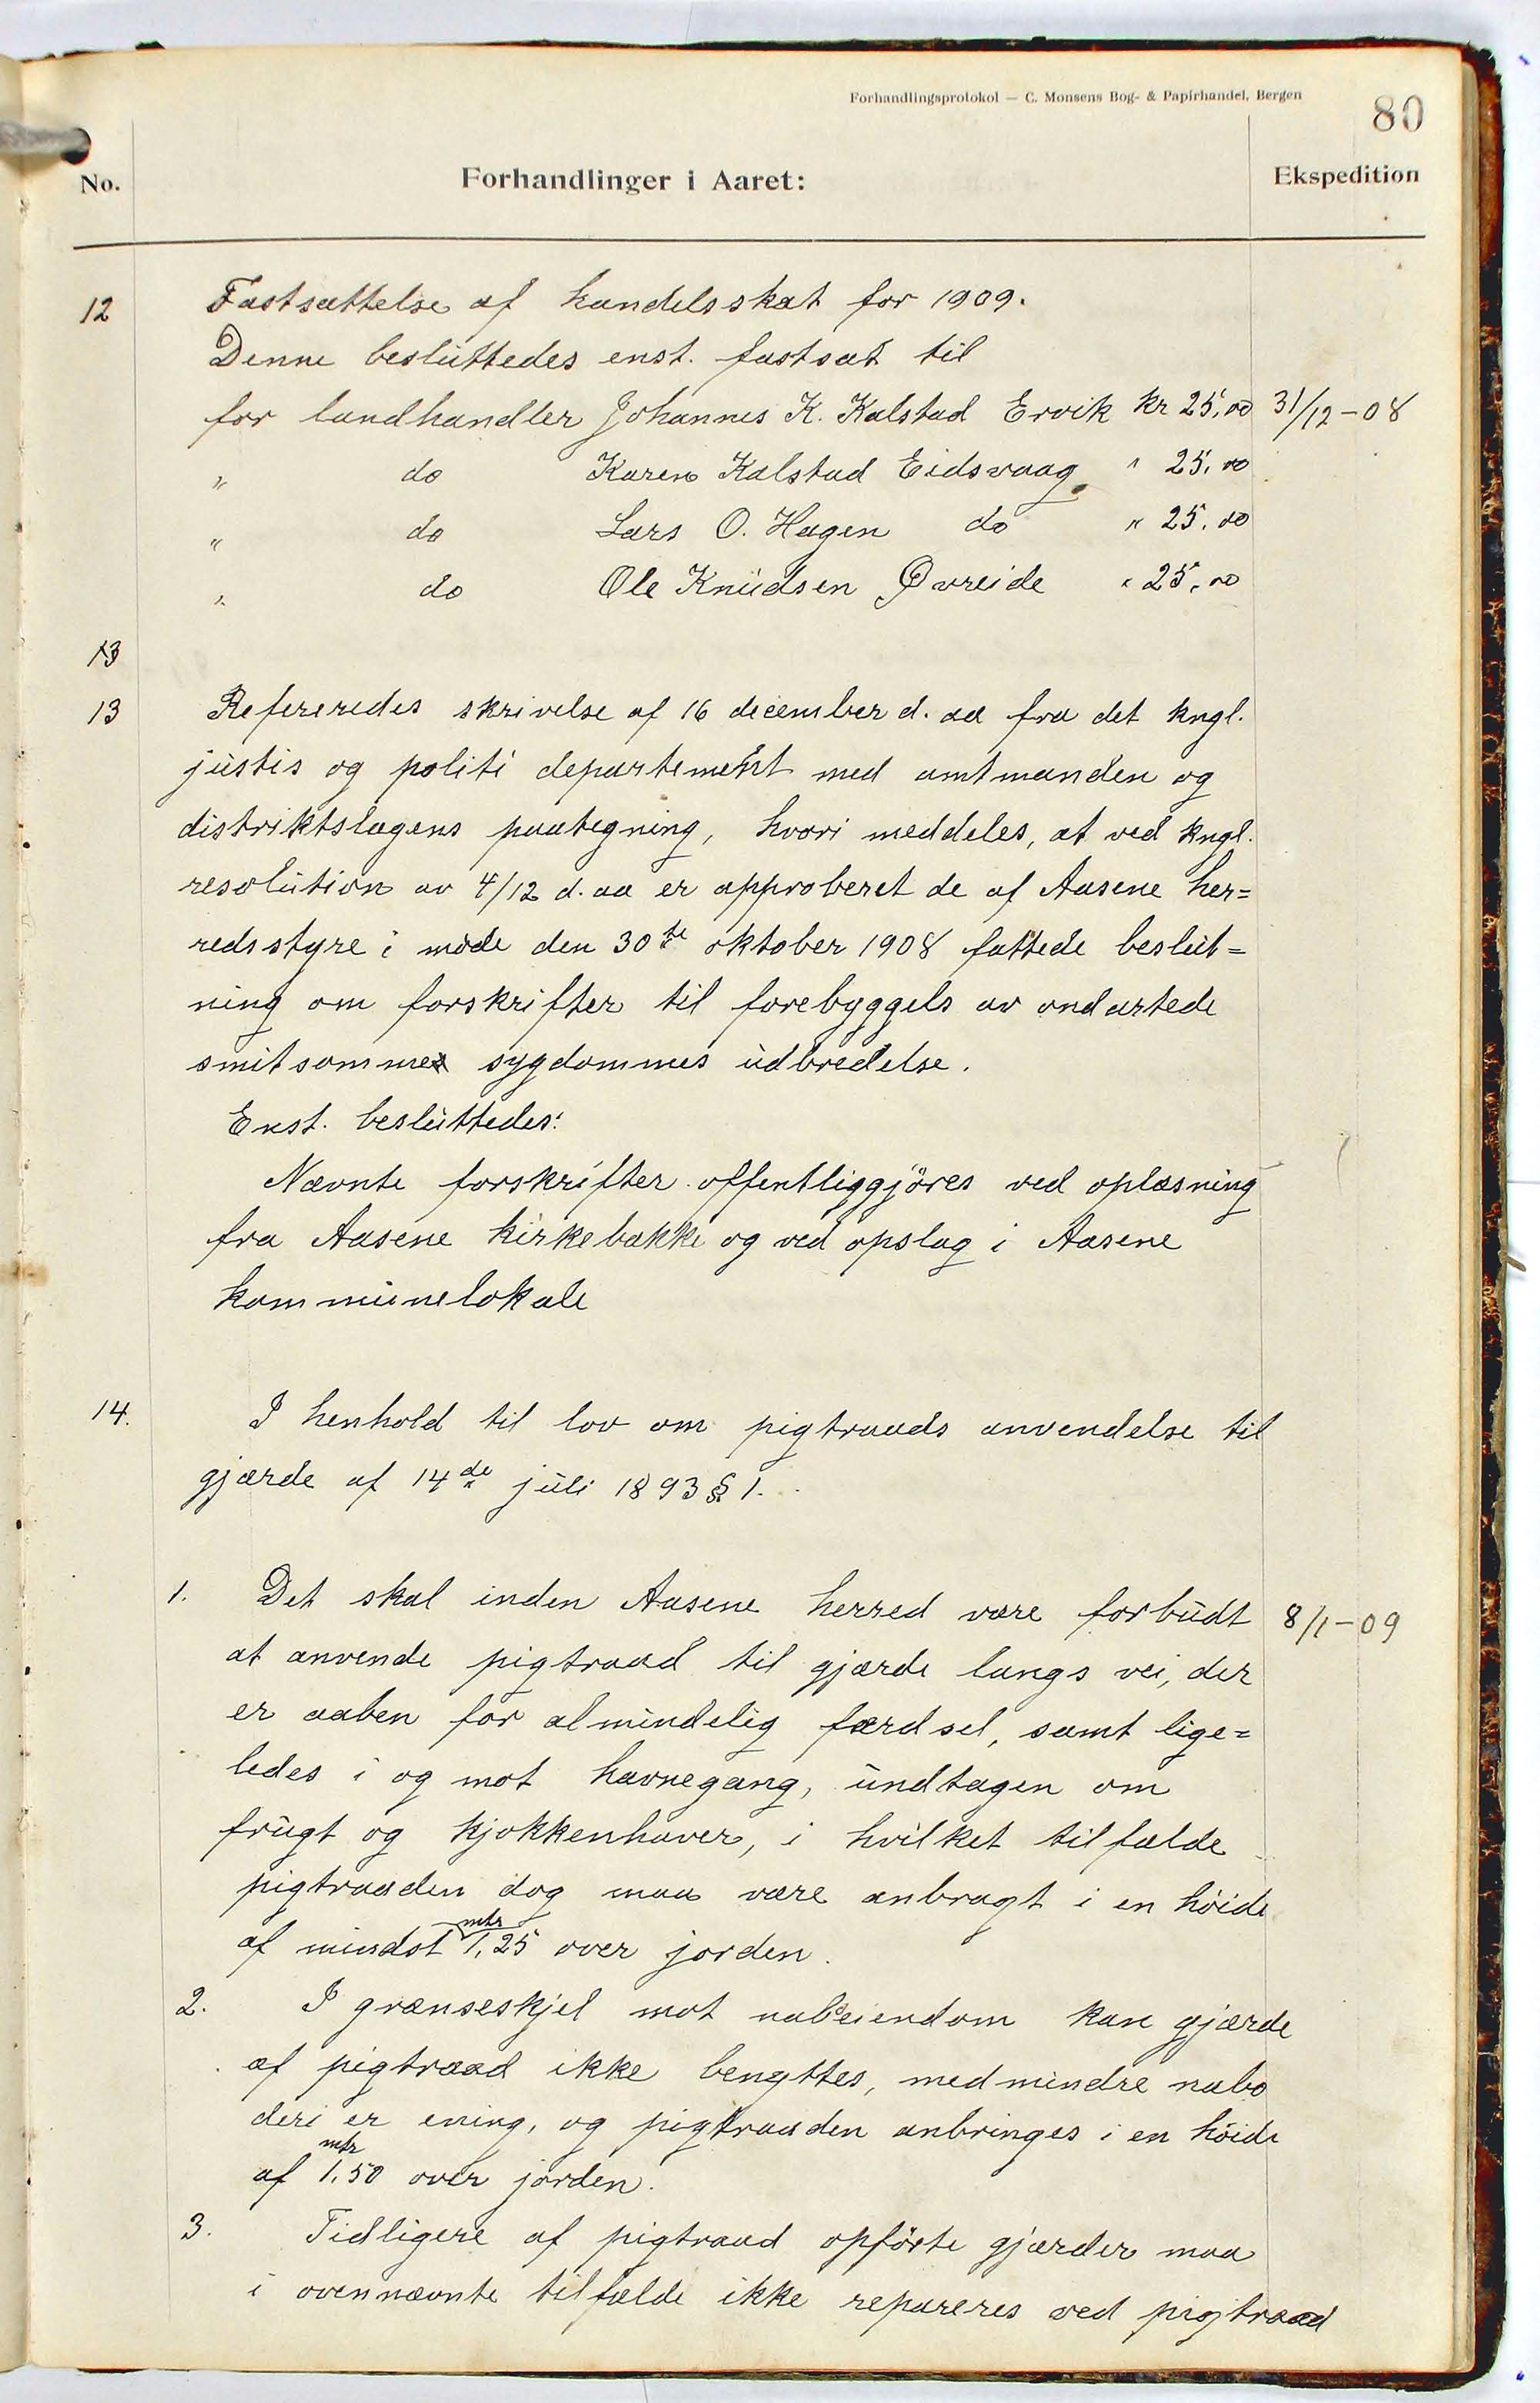 Forhandlingsprotokol — C. Monsens Bog- & Papirhandel, Bergen
80
No. Forhandlinger i Aaret: Ekspedition
12 Fastsættelse af handelsskat for 1909.
Denne besluttedes enst. fastsat til
for landhandler Johannes K. Kalstad Ervik kr 25,00 31/12-08
" do Karen Kalstad Eidsvaag " 25,00
" do Lars O. Hagen do " 25,00
" do Ole Knudsen Øvreide " 25,00
13
13 Refereredes skrivelse af 16 december d. aa fra det kngl.
justis og politi departement med amtmanden og
distriktslægens paategning, hvori meddeles, at ved kngl.
resolution av 4/12 d. aa er approberet de af Aasene her=
redsstyre i møde den 30te oktober 1908 fattede beslut=
ning om forskrifter til forebyggels av ondartede
smitsomme sygdommes udbredelse.
Enst. besluttedes:
Nævnte forskrifter offentliggjöres ved oplæsning
fra Aasene kirkebakke og ved opslag i Aasene
kommunelokale
14. I henhold til lov om pigtraads anvendelse til
gjærde af 14de juli 1893 § 1.
1. Det skal inden Aasene herred være forbudt 8/1-09
at anvende pigtraad til gjærde langs vei, der
er aaben for almindelig færdsel, samt lige=
ledes i og mot havnegang, undtagen om
frugt og kjøkkenhaver, i hvilket tilfælde
pigtraaden dog maa være anbragt i en höide
af mindst mtr 1,25 over jorden.
2. I grænseskjel mot naboeiendom kan gjærde
af pigtraad ikke benyttes, medmindre nabo
deri er ening, og pigtraaden anbringes i en höide
af mtr 1,50 over jorden.
3. Tidligere af pigtraad opförte gjærder maa
i ovennævnte tilfælde ikke repareres ved pigtraad